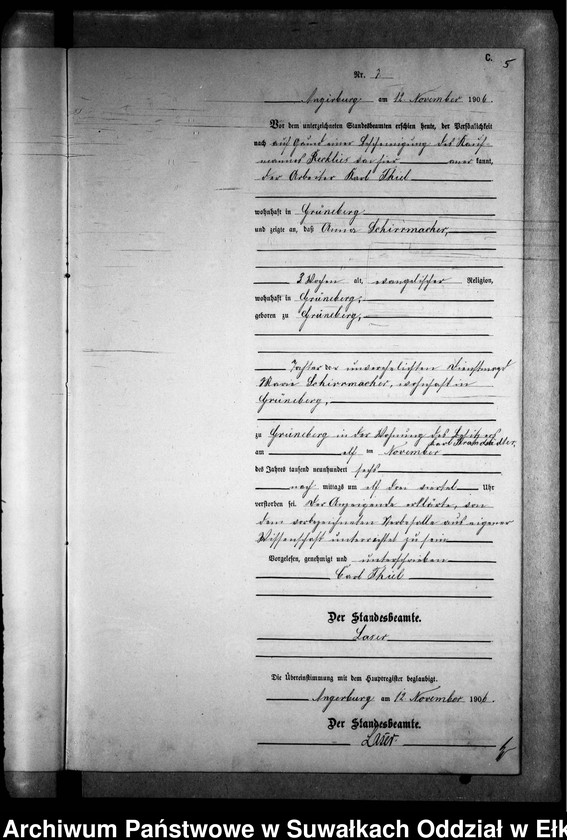 C. 5
Nr. 7
Angerburg am 12 November 1906.
Vor dem unterzeichneten Standesbeamten erschien heute, der Persönlichkeit
nach auf Grund einer Bescheinigung des Kauf-
manns von hier anerkannt,
der Arbeiter Karl Thiel
wohnhaft in Grüneberg
und zeigte an, daß Anna Schirrmacher,
3 Wochen alt, evangelischer Religion,
wohnhaft in Grüneberg,
geboren zu Grüneberg,
Tochter der unverehelichten Dienstmagd
Marie Schirrmacher, wohnhaft in
Grüneberg,
zu Grüneberg in der Wohnung des Besitzers
Karl
am elf ten November
des Jahres tausend neunhundert sechs
nach mittags um elf drei viertel Uhr
verstorben sei. Der Anzeigende erklärte, von
dem vorbezeichneten Sterbefalle aus eigener
Wissenschaft unterrichtet zu sein
Vorgelesen, genehmigt und unterschrieben
Carl Thiel
Der Standesbeamte.
Laser
Die Übereinstimmung mit dem Hauptregister beglaubigt.
Angerburg am 12 November 1906.
Der Standesbeamte.
Laser
Archiwum Państwowe w Suwałkach Oddział w Ełk